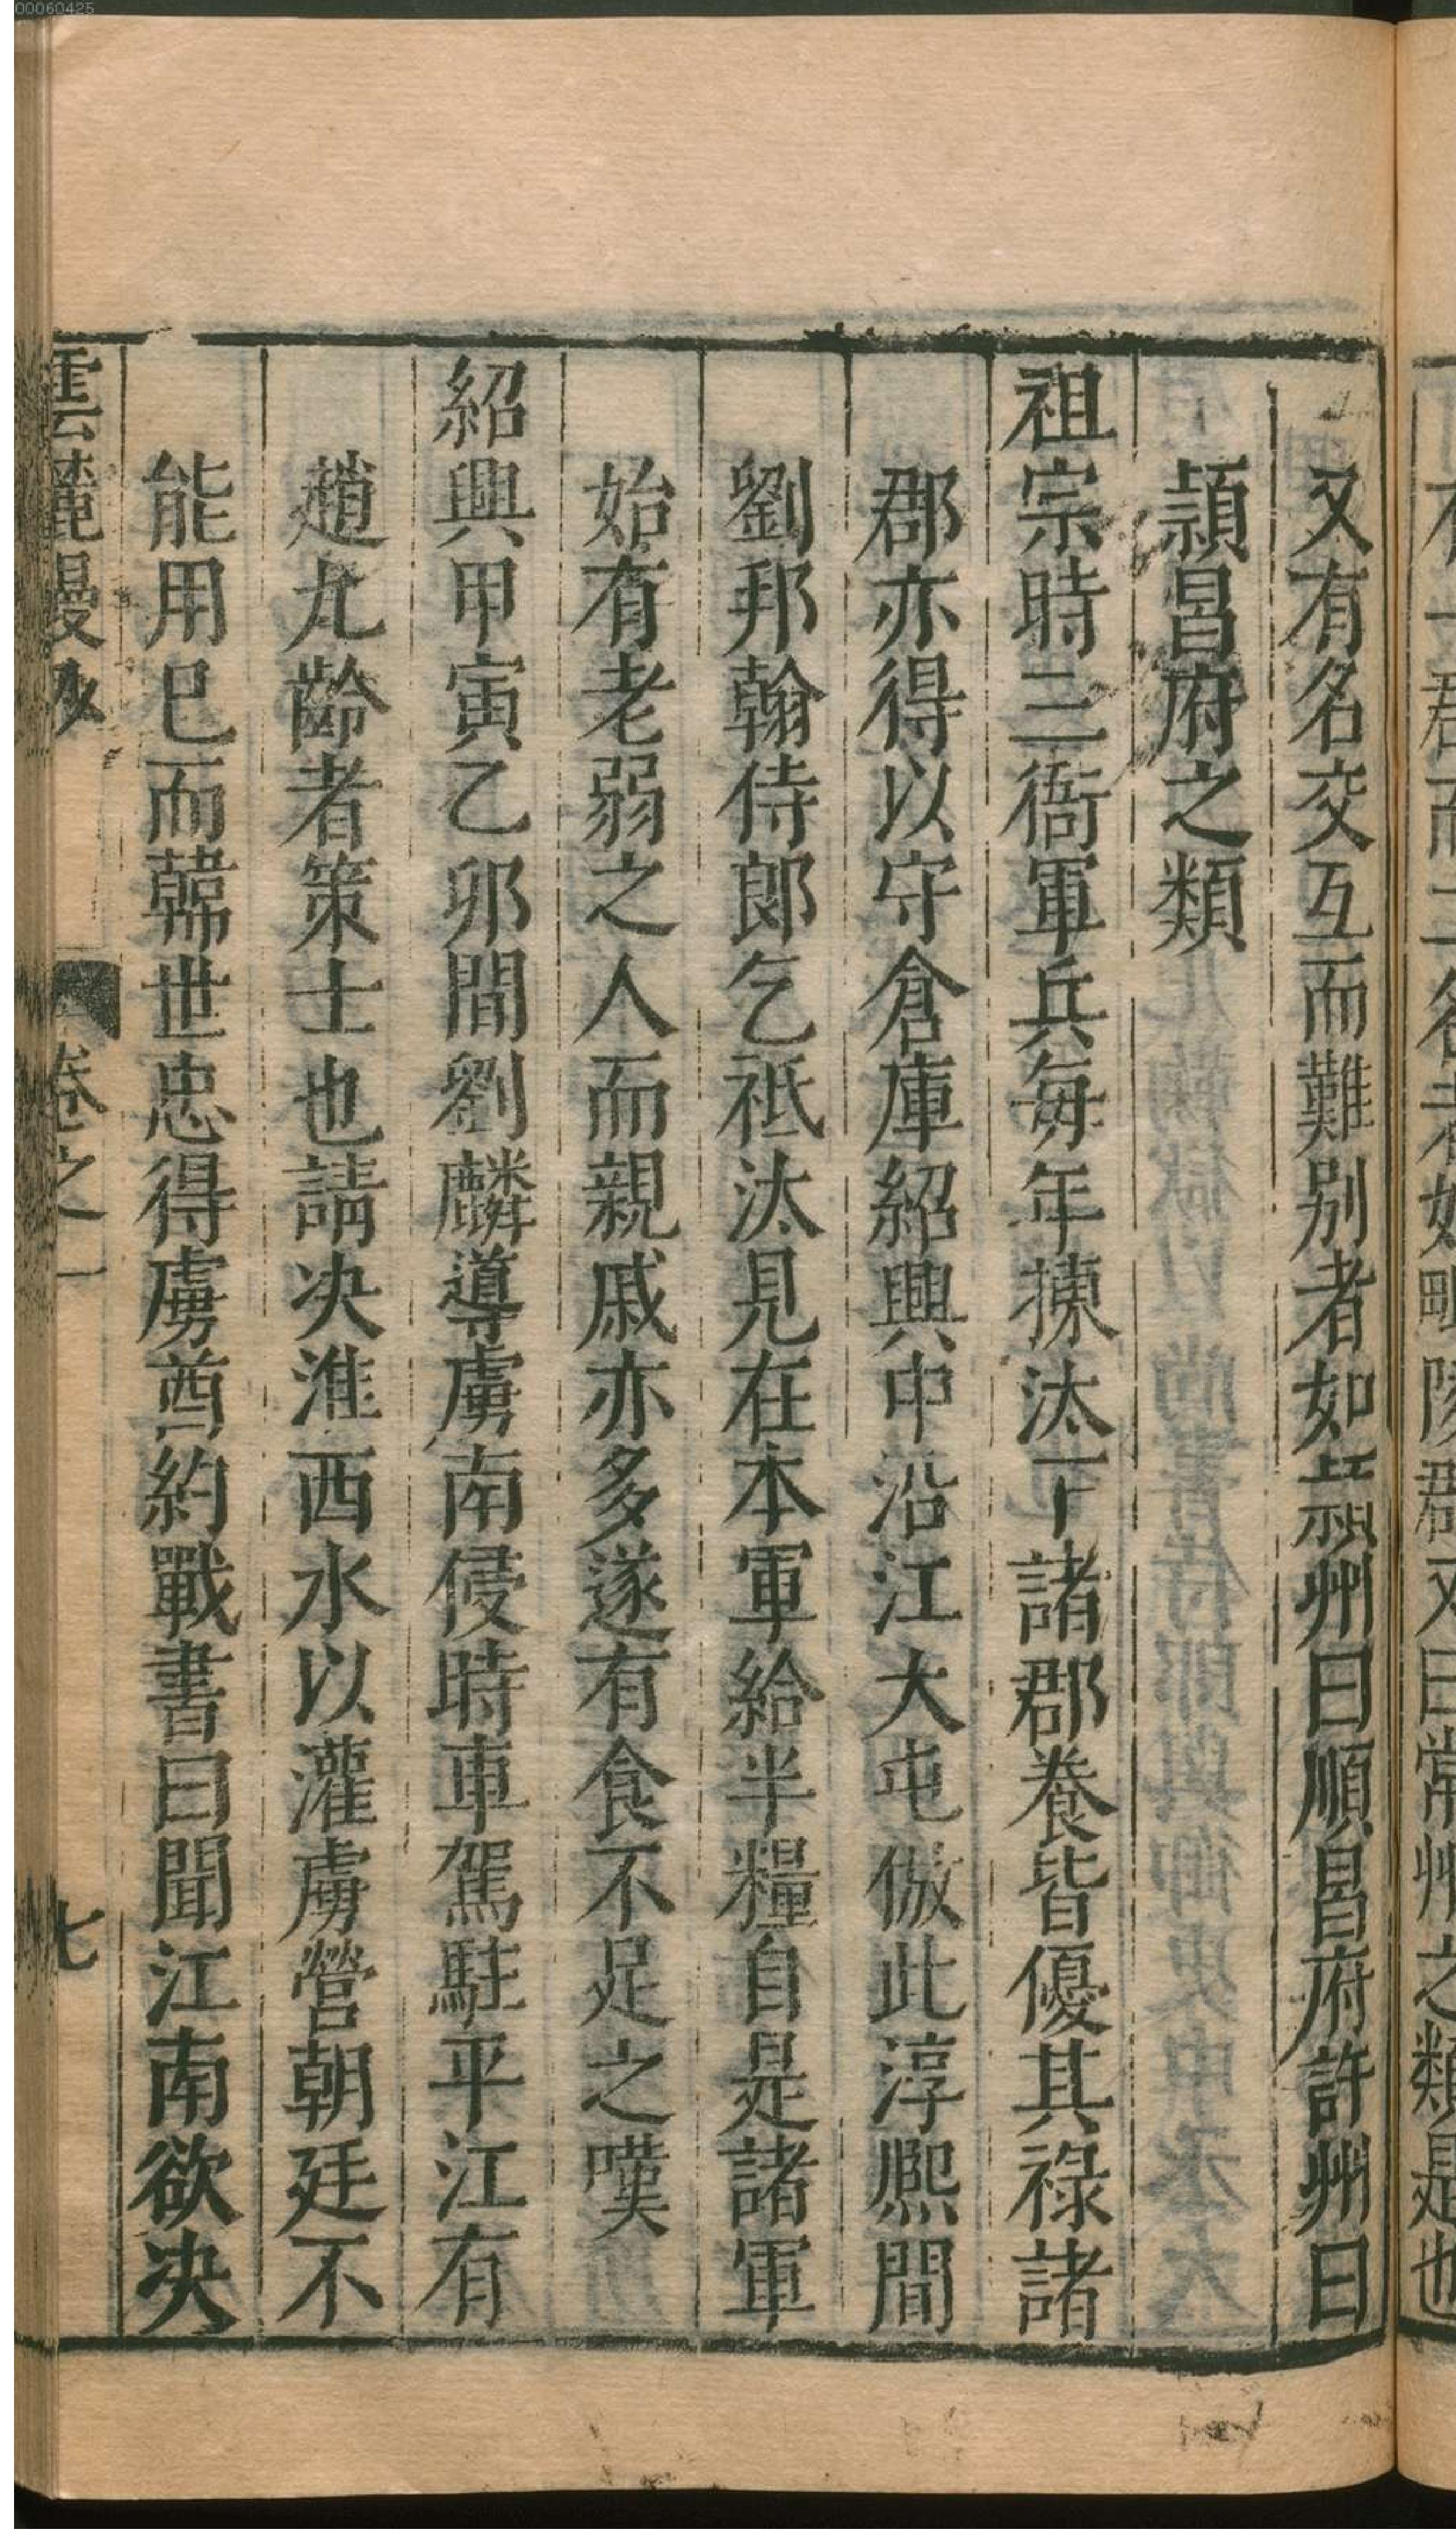 又有名交互而難别者如潁州曰順昌府許州曰
潁昌府之類
祖宗時三衙軍兵每年揀汰下諸郡養皆優其祿諸
郡亦得以守倉庫紹興中沿江大屯倣此淳熈間
劉邦翰侍郎乞祗汰見在本軍給半糧自是諸軍
始有老弱之人而親戚亦多遂有食不足之嘆
紹興甲寅乙卯間劉麟導虜南侵時車駕駐平江有
趙九齡者策士也請决淮西水以灌虜營朝廷不
能用巳而韓世忠得虜酋約戰書曰聞江南欲决
雲麓漫抄
卷之一
七
00060425